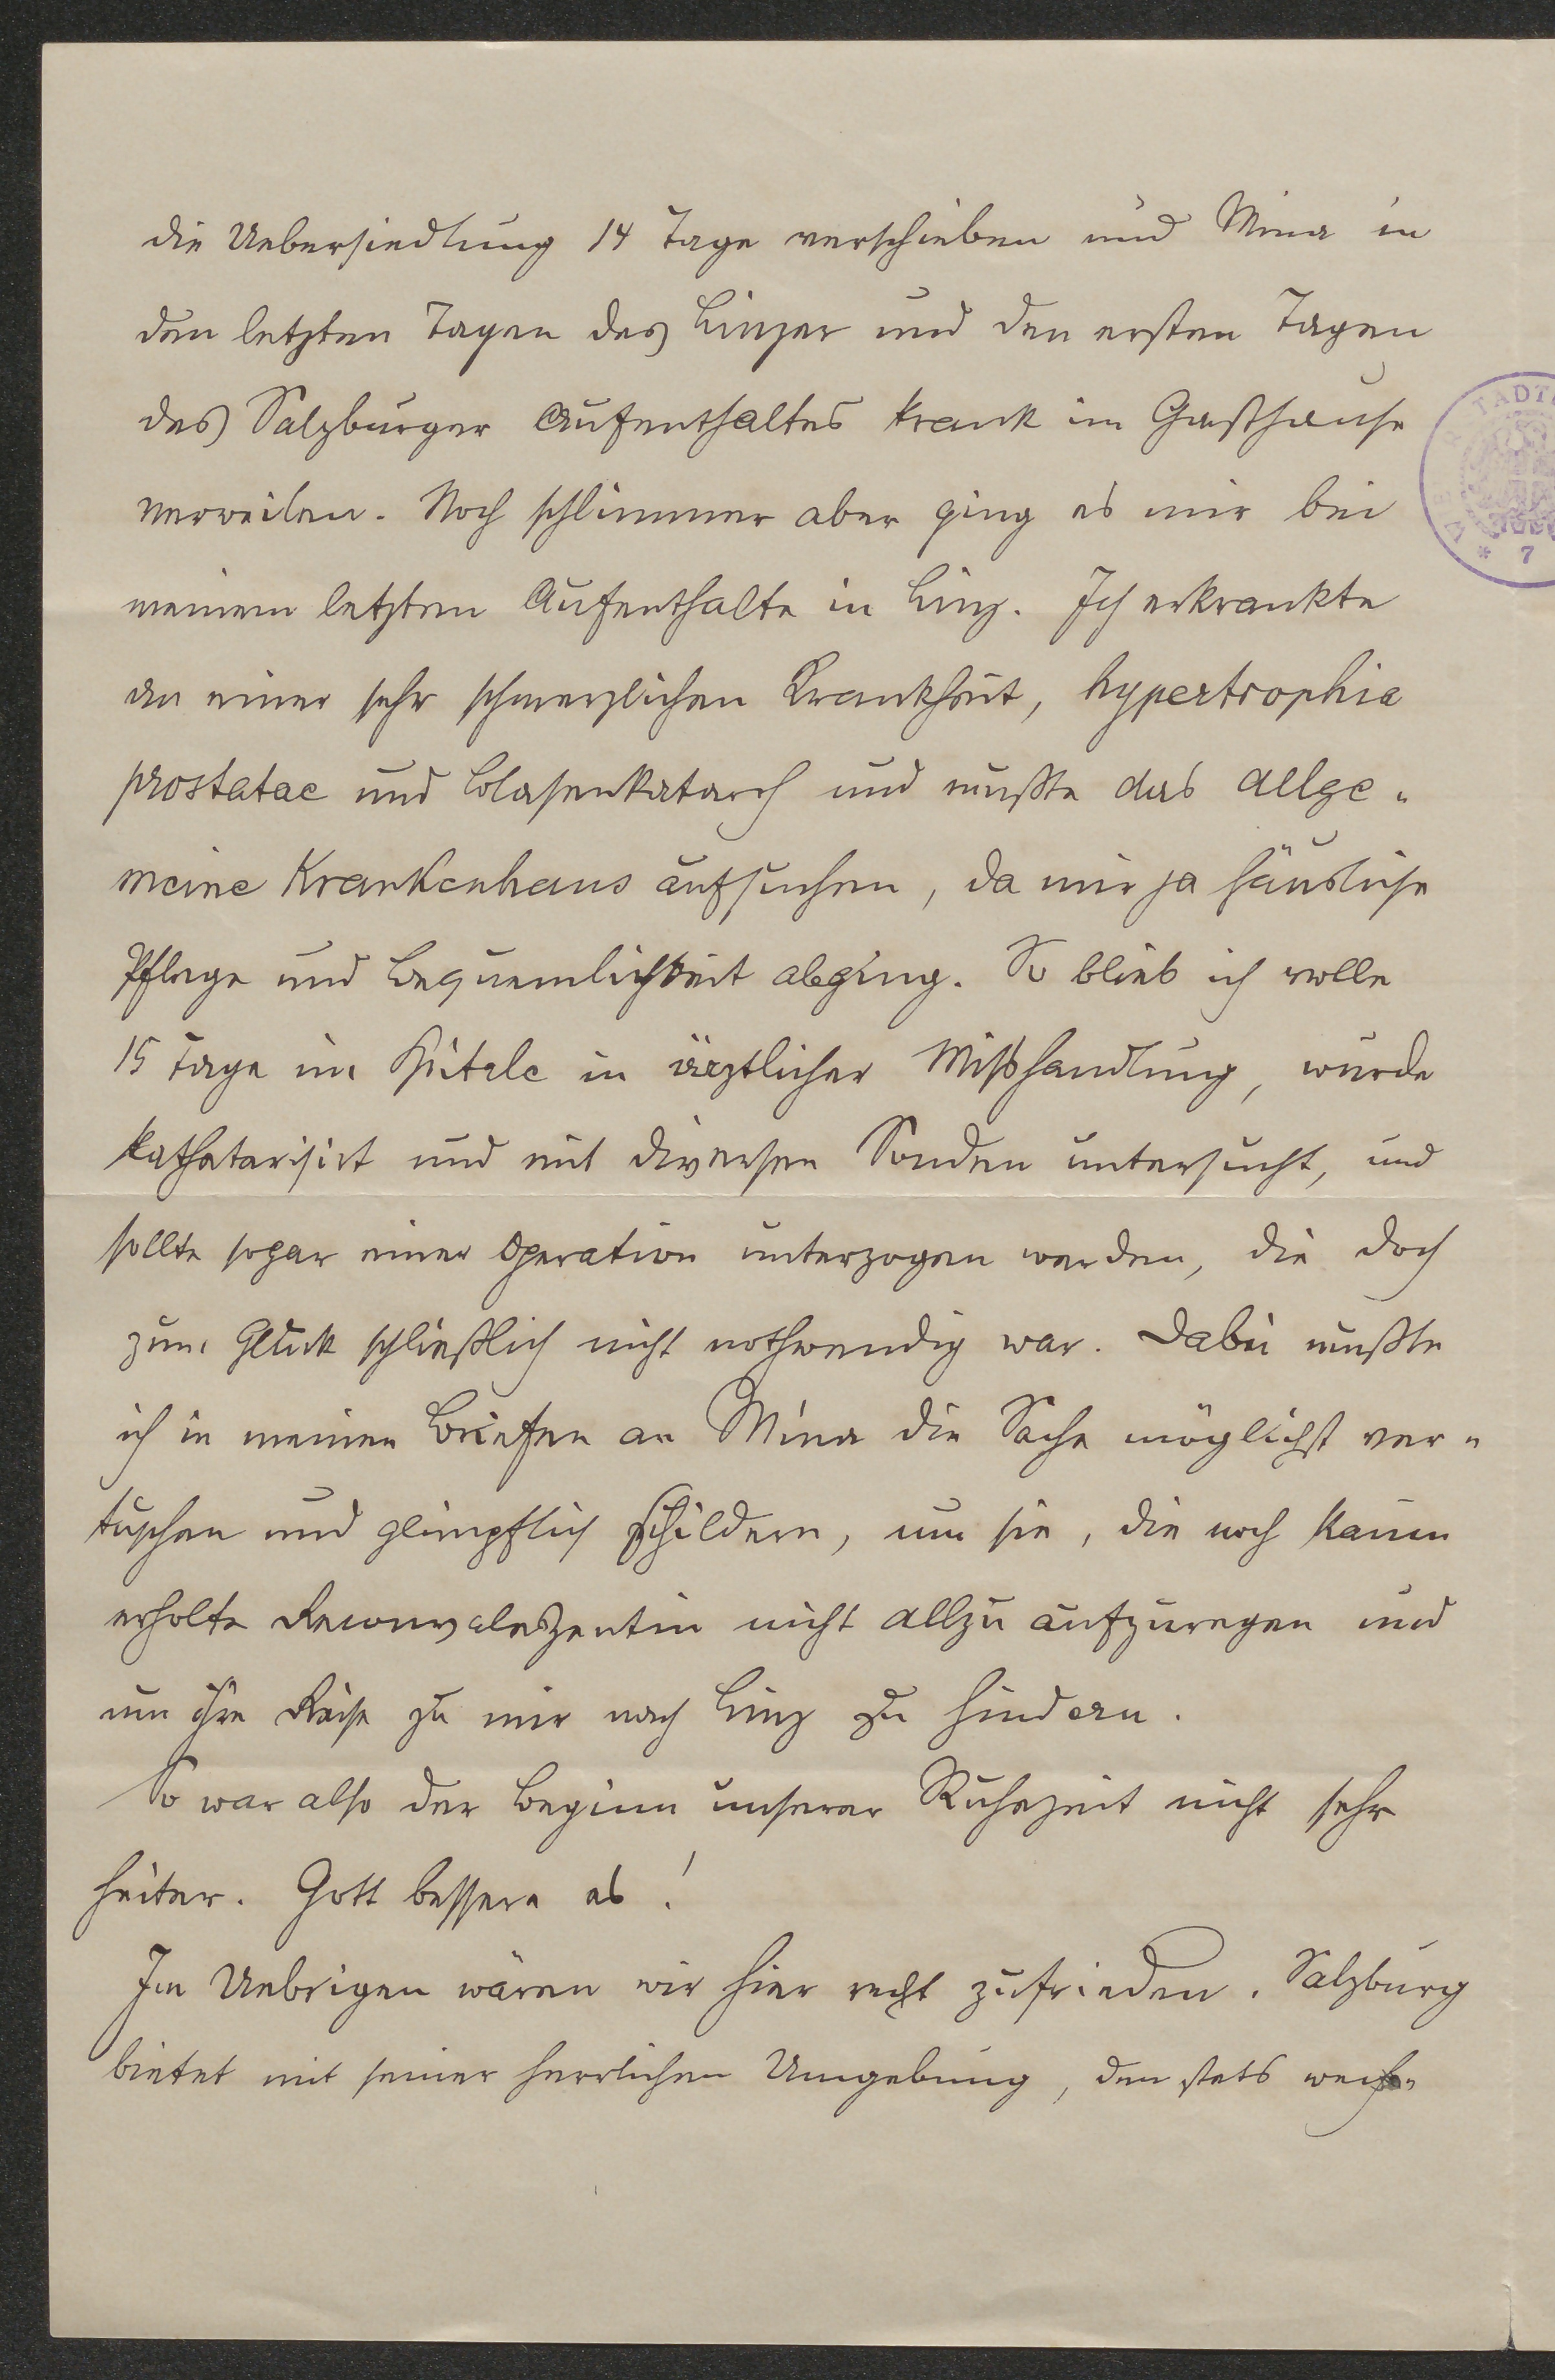 die Uebersiedlung 14 Tage verschieben und Mina in
den letzten Tagen des Linzer und den ersten Tagen
des Salzburger Aufenthaltes krank im Gasthause
verweilen. Noch schlimmer aber ging es mir bei
meinem letzten Aufenthalte in Linz. Ich erkrankte
an einer sehr schmerzlichen Krankheit, hypertrophia
prostatae und Blasenkatarrh und mußte das allge-
meine Krankenhaus aufsuchen, da mir ja häusliche
Pflege und Bequemlichkeit abging. So blieb ich volle
15 Tage im Spitale in ärztlicher Mißhandlung, wurde
kathetarisirt und mit diversen Sonden untersucht, und
sollte sogar einer Operation unterzogen werden, die doch
zum Glück schließlich nicht nothwendig war. Dabei mußte
ich in meinen Briefen an Mina die Sache möglichst ver-
tuschen und glimpflich schildern, um sie, die noch kaum
erholte Reconvaleszentin nicht allzu aufzuregen und
um ihre Reise zu mir nach Linz zu hindern.
So war also der Beginn unserer Ruhezeit nicht sehr
heiter. Gott bessere es!
Im Uebrigen wären wir hier recht zufrieden. Salzburg
bietet mit seiner herrlichen Umgebung, den stets wech-
* 7